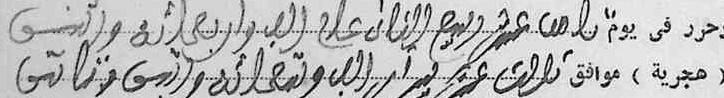 وحرر فى يوم ثامن عشر ربيع الثانى عام الف واربعمائة واثنين
( هجرية ) موافق ثالث عشر فبراير الف وتسعمائة واثنين وثمانين